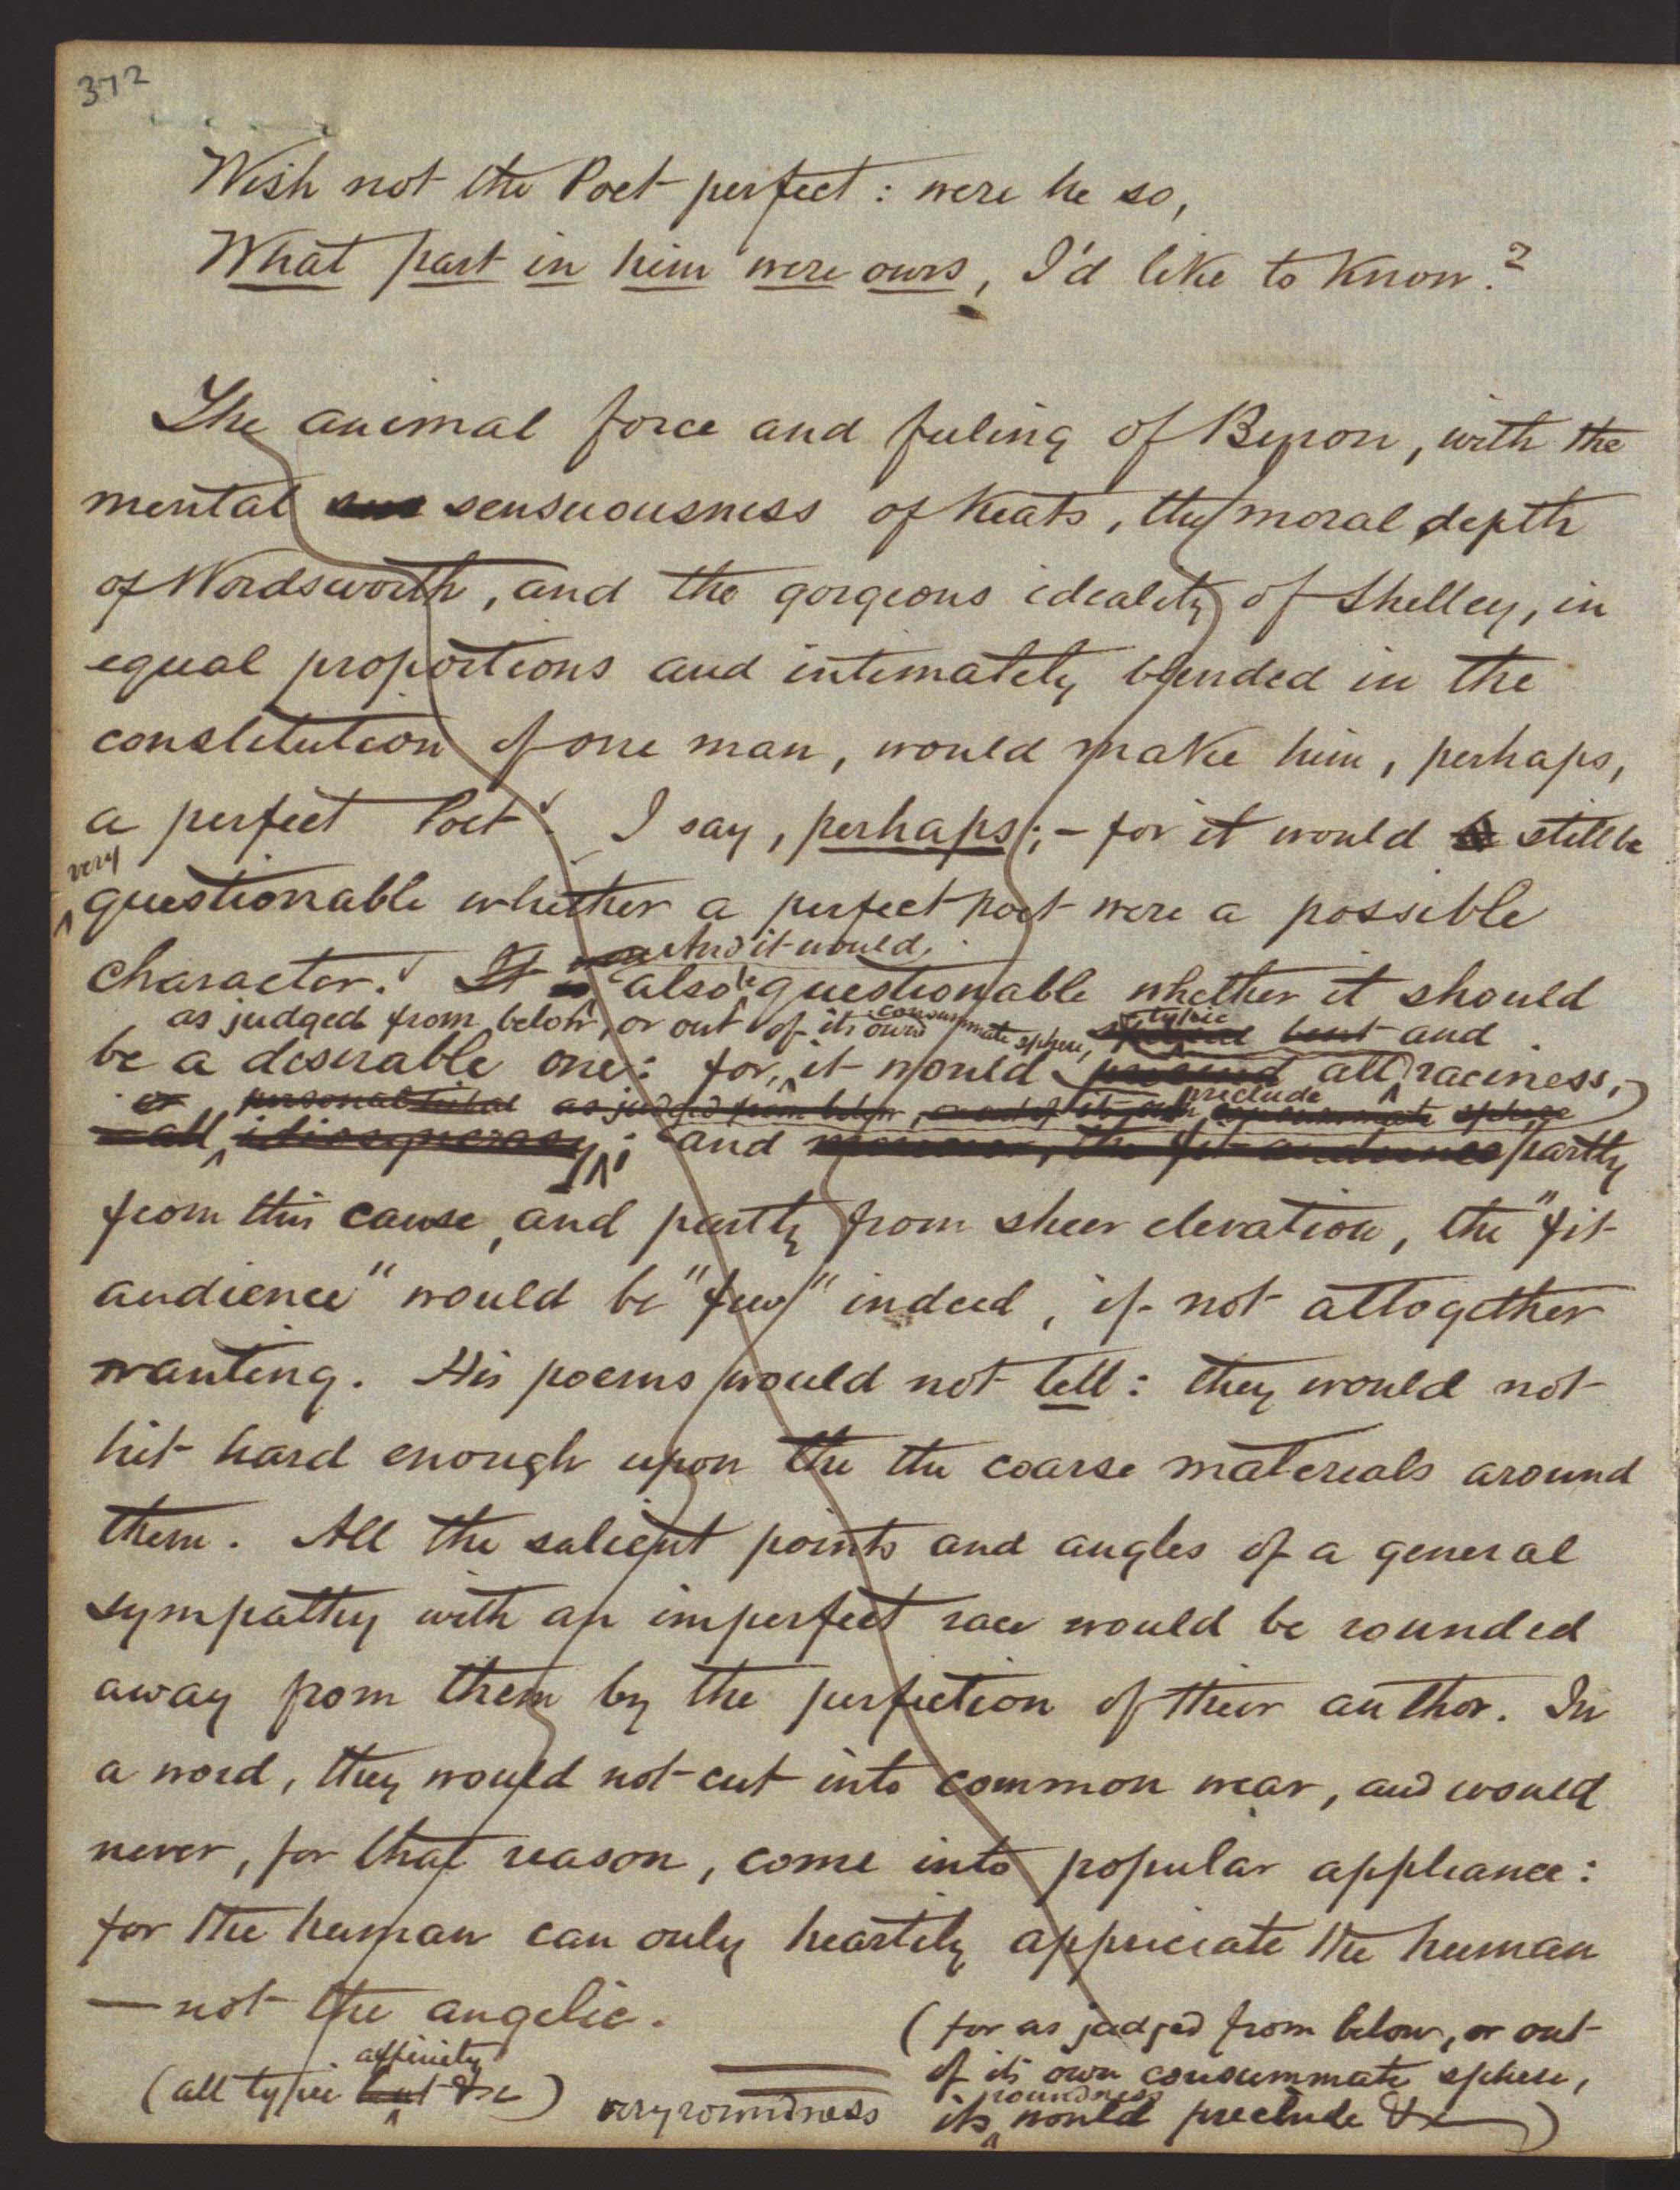 372
Wish not the Poet perfect: were he so,
What part in him were ours, I'd like to know.?
The animal force and feeling of Byron, with the
mental sensuousness of Keats, the moral depth
of Wordsworth, and the gorgeous ideality of Shelley, in
equal proportions and intimately blended in the
constitution of one man, would make him, perhaps,
a perfect Poet. I say, perhaps; – for it would still be
very
questionable whether a perfect poet were a possible
And it would
character. It is also be questionable whether it should
as judged from below, or out of its own consummate sphere, typic bent and
be a desirable one: for, it would preclude all raciness,
or personal as judged from below, or out of its own consummate sphere
– all idiosyncrasy; and moreover, the fit audience partly
from this cause, and partly from sheer elevation, the "fit
audience" would be "few" indeed, if not altogether
wanting. His poems would not tell: they would not
hit hard enough upon the the coarse materials around
them. All the salient points and angles of a general
sympathy with an imperfect race would be rounded
away from them by the perfection of their author. In
a word, they would not cut into common wear, and would
never, for that reason, come into popular appliance:
for the human can only heartily appreciate the human
— not the angelic.
(for as judged from below, or out
of its own consummate sphere,
roundness
its would preclude &c)
affinity
(all typic bent &c)
very roundness